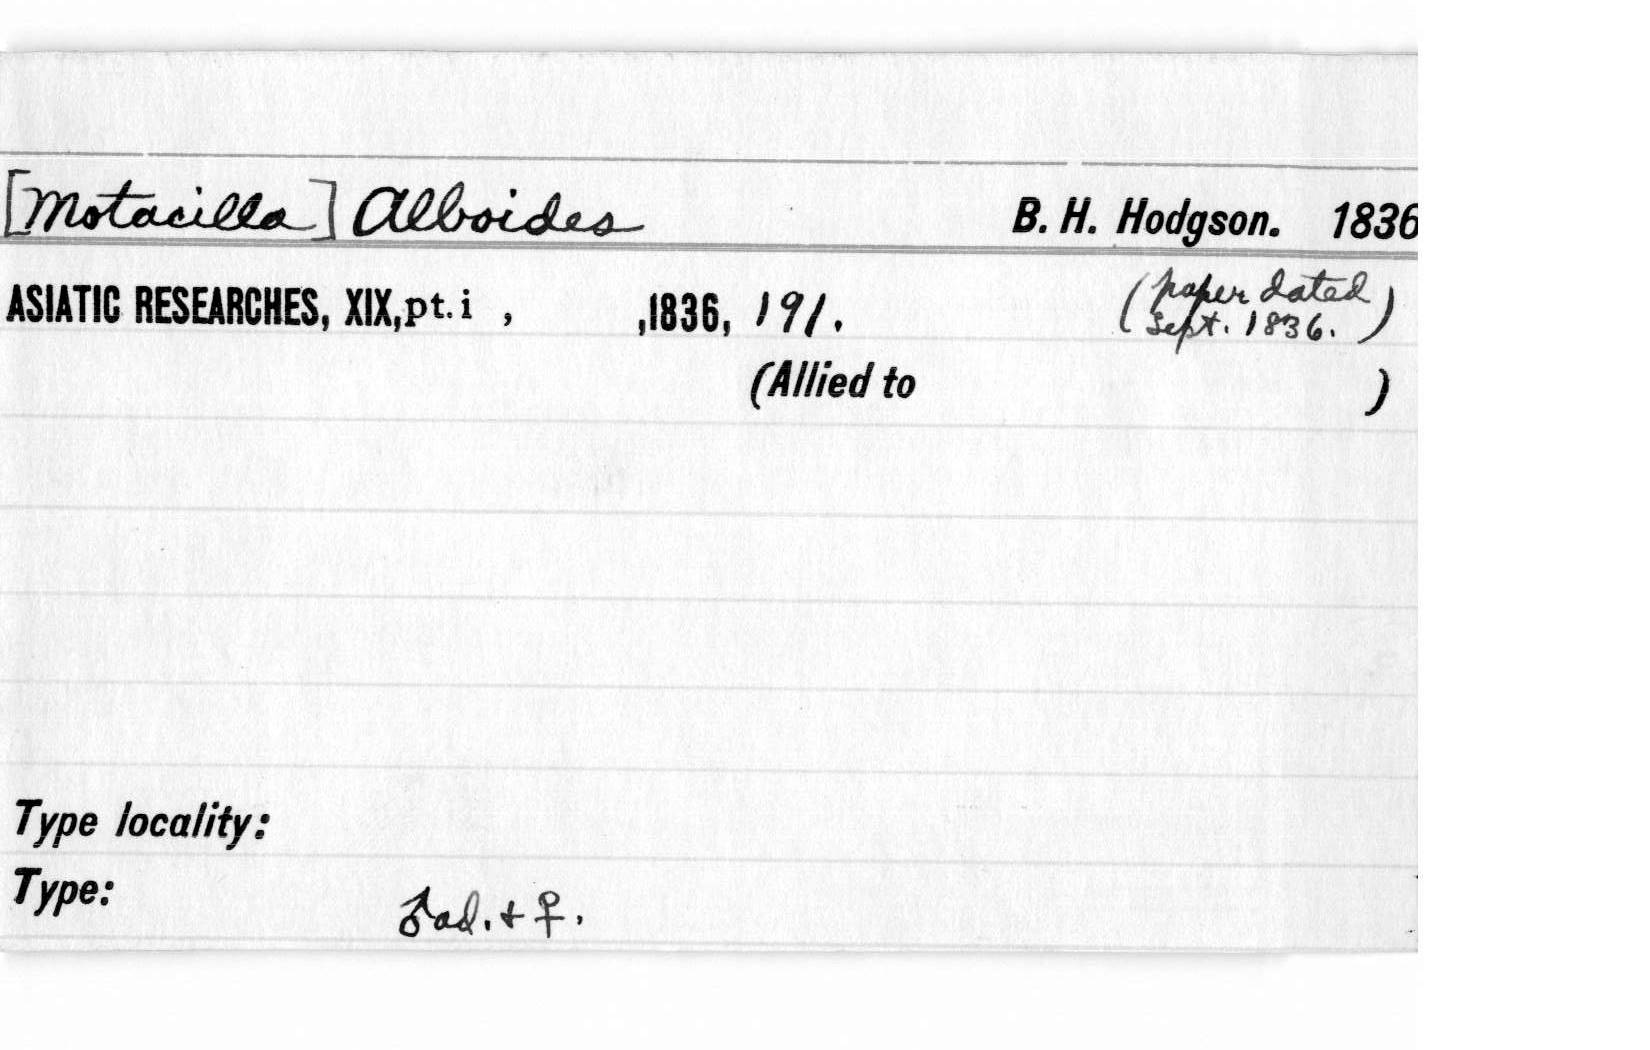 [Motacilla] Alboides B. H. Hodgson. 1836
ASIATIC RESEARCHES, XIX, pt. i , ,1836, 191. (paper dated
Sept. 1836.)
(Allied to )
Type locality:
Type: ♂ ad. + ♀.